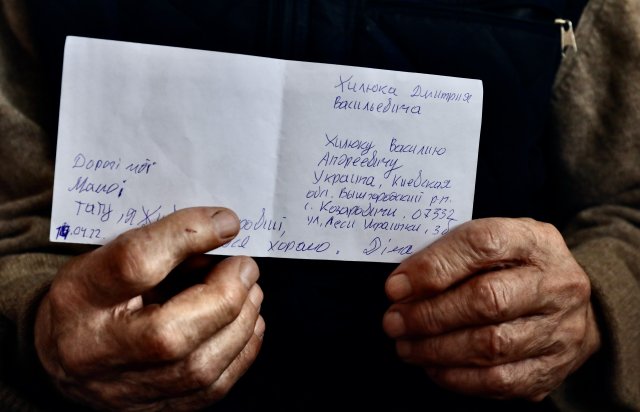 Хилюка Дмитрия
Васильевича
Хилюку Василию
Андреевичу
Украина, Киевская
обл. Вышгородский р.н.
с. Козаровичи, 07332
ул. Леси Украинки, 3
Дорогі мої
Мамо і
тату, я
.04.22 хорошо. Діма